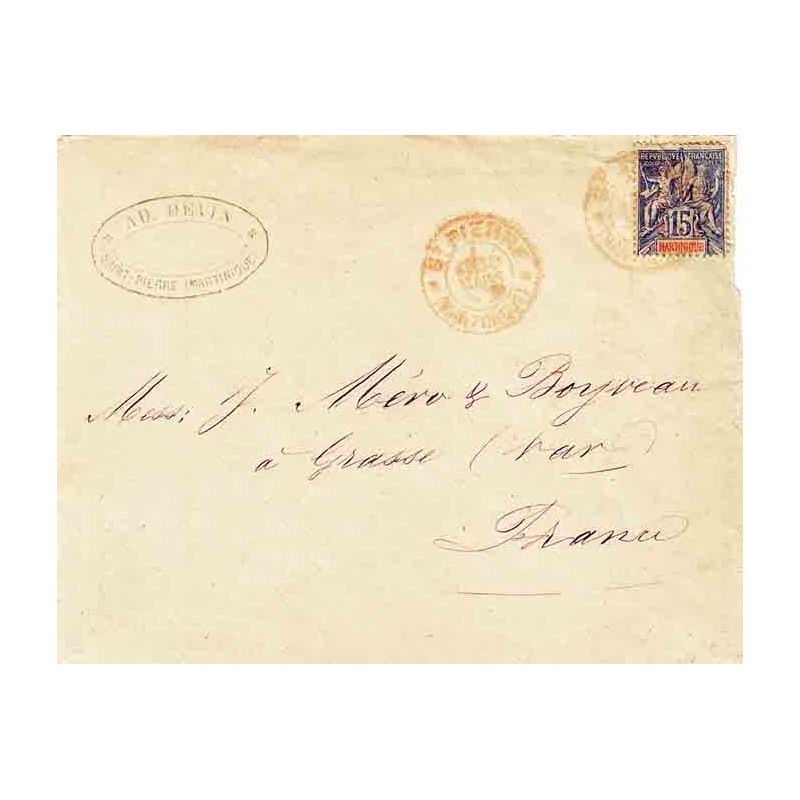 AD. DEVIN
SAINT-PIERRE (MARTINIQUE)
ST PIERRE
MARTINIQUE
REPUBLIQUE FRANÇAISE
COLONIES POSTES
15
MARTINIQUE
Mess: J. Méro & Boyveau
à Grasse (Var)
France